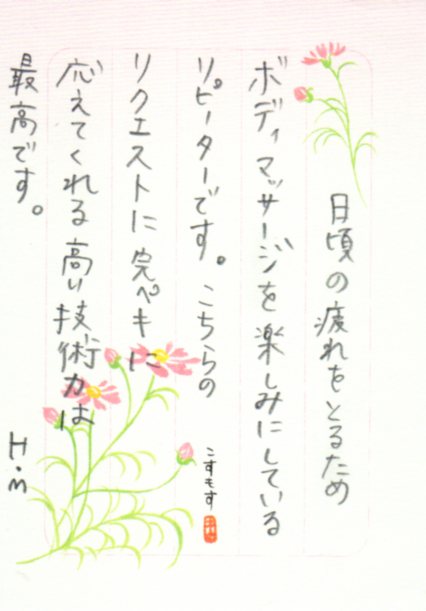 日頃の疲れをとるため
ボディマッサージを楽しみにしている
リピーターです。こちらの
リクエストに完ペキに
応えてくれる高い技術力は
最高です。
H.m
こすもす